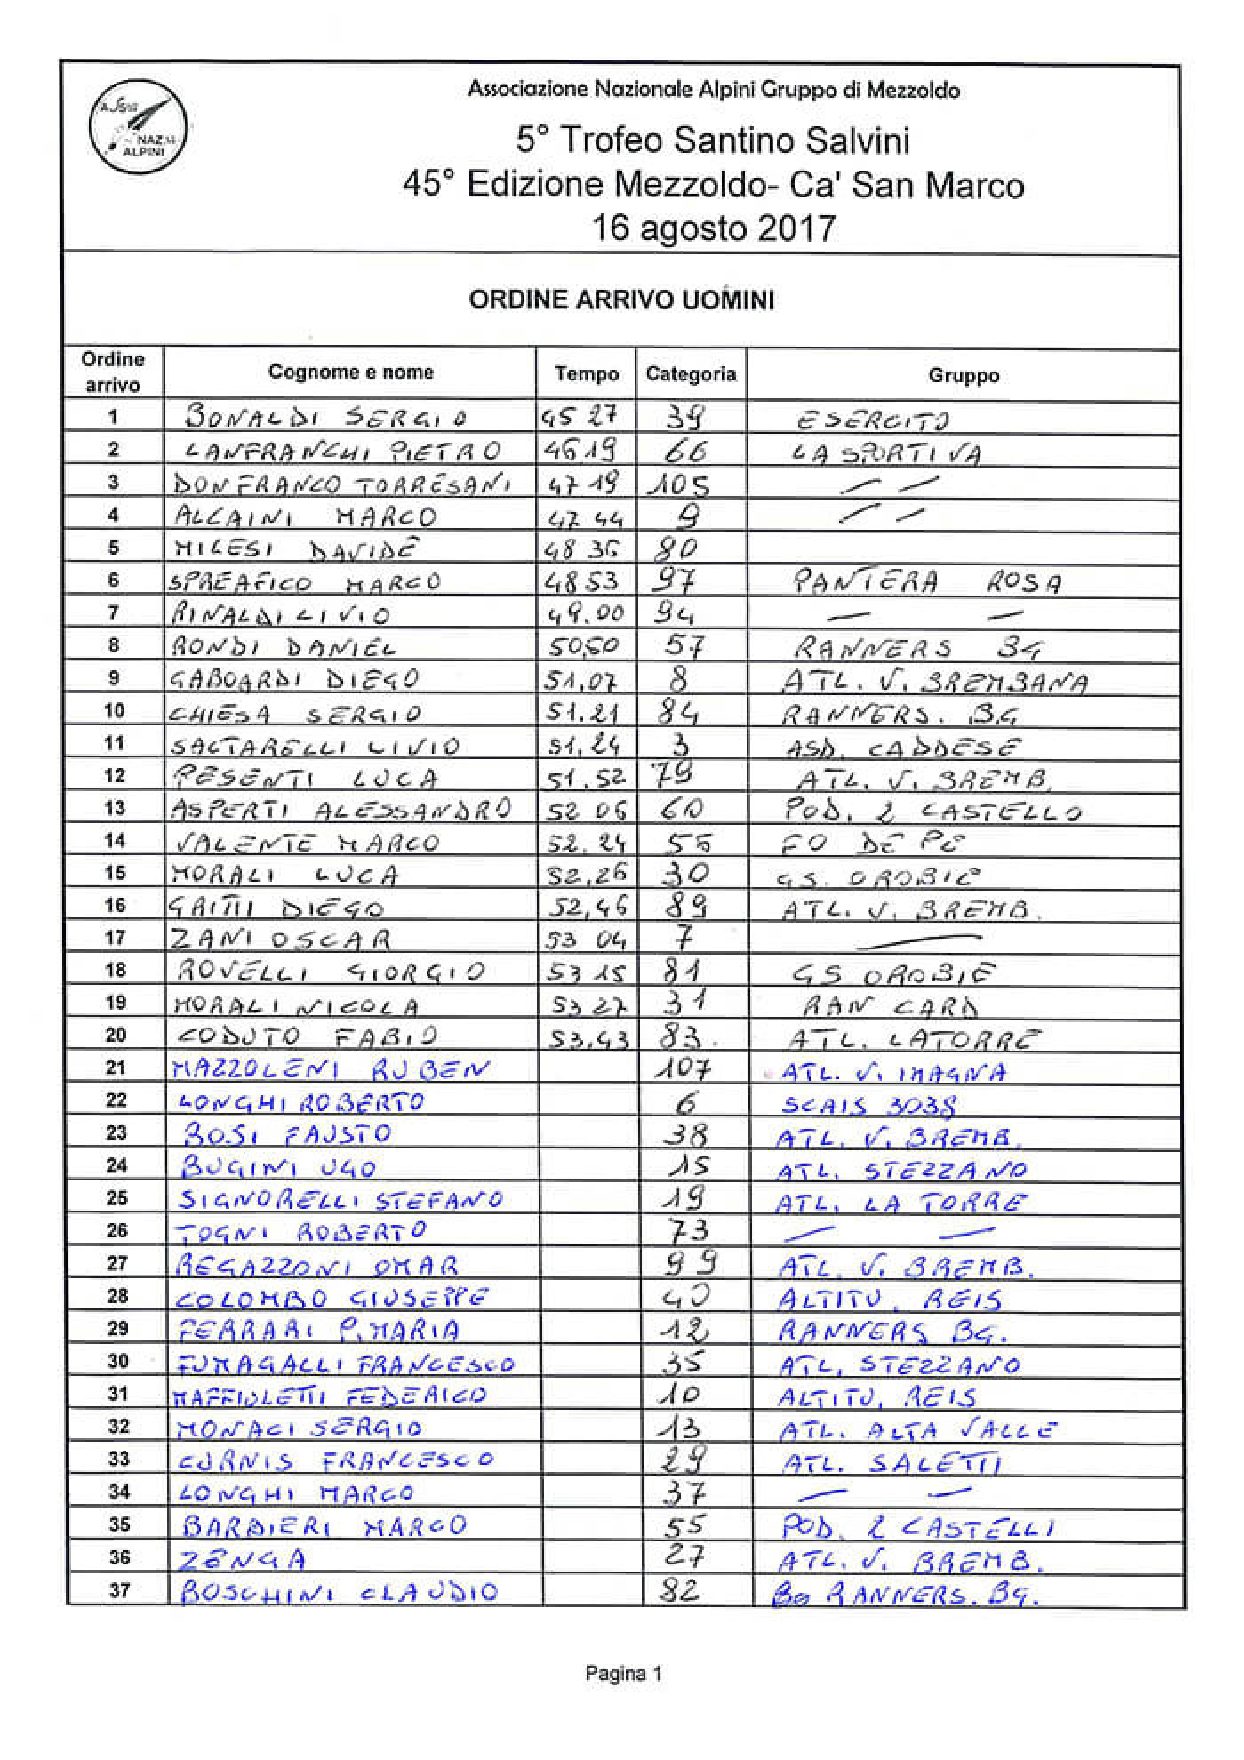 Associazione Nazionale Alpini Gruppo di Mezzoldo
NAZ
ALPINI
5° Trofeo Santino Salvini
45° Edizione Mezzoldo- Ca' San Marco
16 agosto 2017
ORDINE ARRIVO UOMINI
Ordine arrivo Cognome e nome Tempo Categoria Gruppo
1 BONALDI SERGIO 45 27 39 ESERCITO
2 LANFRANCHI PIETRO 46 19 66 LA SPORTIVA
3 DON FRANCO TORRESANI 47 19 105 — —
4 ALCAINI MARCO 47 44 9 — —
5 MILESI DAVIDE 48 36 80
6 SPREAFICO MARCO 48 53 97 PANTERA ROSA
7 RINALDI LIVIO 49.00 94 — —
8 RONDI DANIEL 50,50 57 RANNERS BG
9 GABOARDI DIEGO 51,07 8 ATL. V. BREMBANA
10 CHIESA SERGIO 51.21 84 RANNERS. BG
11 SALTARELLI LIVIO 51,24 3 ASD. CADDESE
12 PESENTI LUCA 51,52 79 ATL. V. BREMB.
13 ASPERTI ALESSANDRO 52 06 60 POD. 2 CASTELLO
14 VALENTE MARCO 52.24 55 FO DE PE
15 MORALI LUCA 52,26 30 GS. OROBIE
16 GRITTI DIEGO 52,46 89 ATL. V. BREMB.
17 ZANI OSCAR 53 04 7 —
18 ROVELLI GIORGIO 53 15 81 GS OROBIE
19 MORALI NICOLA 53 27 31 RAN CARD
20 CODUTO FABIO 53,43 83. ATL. LATORRE
21 MAZZOLENI RUBEN 107 ATL. V. IMAGNA
22 LONGHI ROBERTO 6 SCAIS 3038
23 BOSI FAUSTO 38 ATL. V. BREMB.
24 BUGINI UGO 15 ATL. STEZZANO
25 SIGNORELLI STEFANO 19 ATL. LA TORRE
26 TOGNI ROBERTO 73 — —
27 REGAZZONI OMAR 99 ATL. V. BREMB.
28 COLOMBO GIUSEPPE 40 ALTITU. REIS
29 FERRARI P.MARIA 12 RANNERS BG.
30 FUMAGALLI FRANCESCO 35 ATL. STEZZANO
31 MAFFIOLETTI FEDERICO 10 ALTITU, REIS
32 MONACI SERGIO 13 ATL. ALTA VALLE
33 CURNIS FRANCESCO 29 ATL. SALETTI
34 LONGHI MARCO 37 — —
35 BARBIERI MARCO 55 POD. 2 CASTELLI
36 ZENGA 27 ATL. V. BREMB.
37 BOSCHINI CLAUDIO 82 RANNERS. BG.
Pagina 1